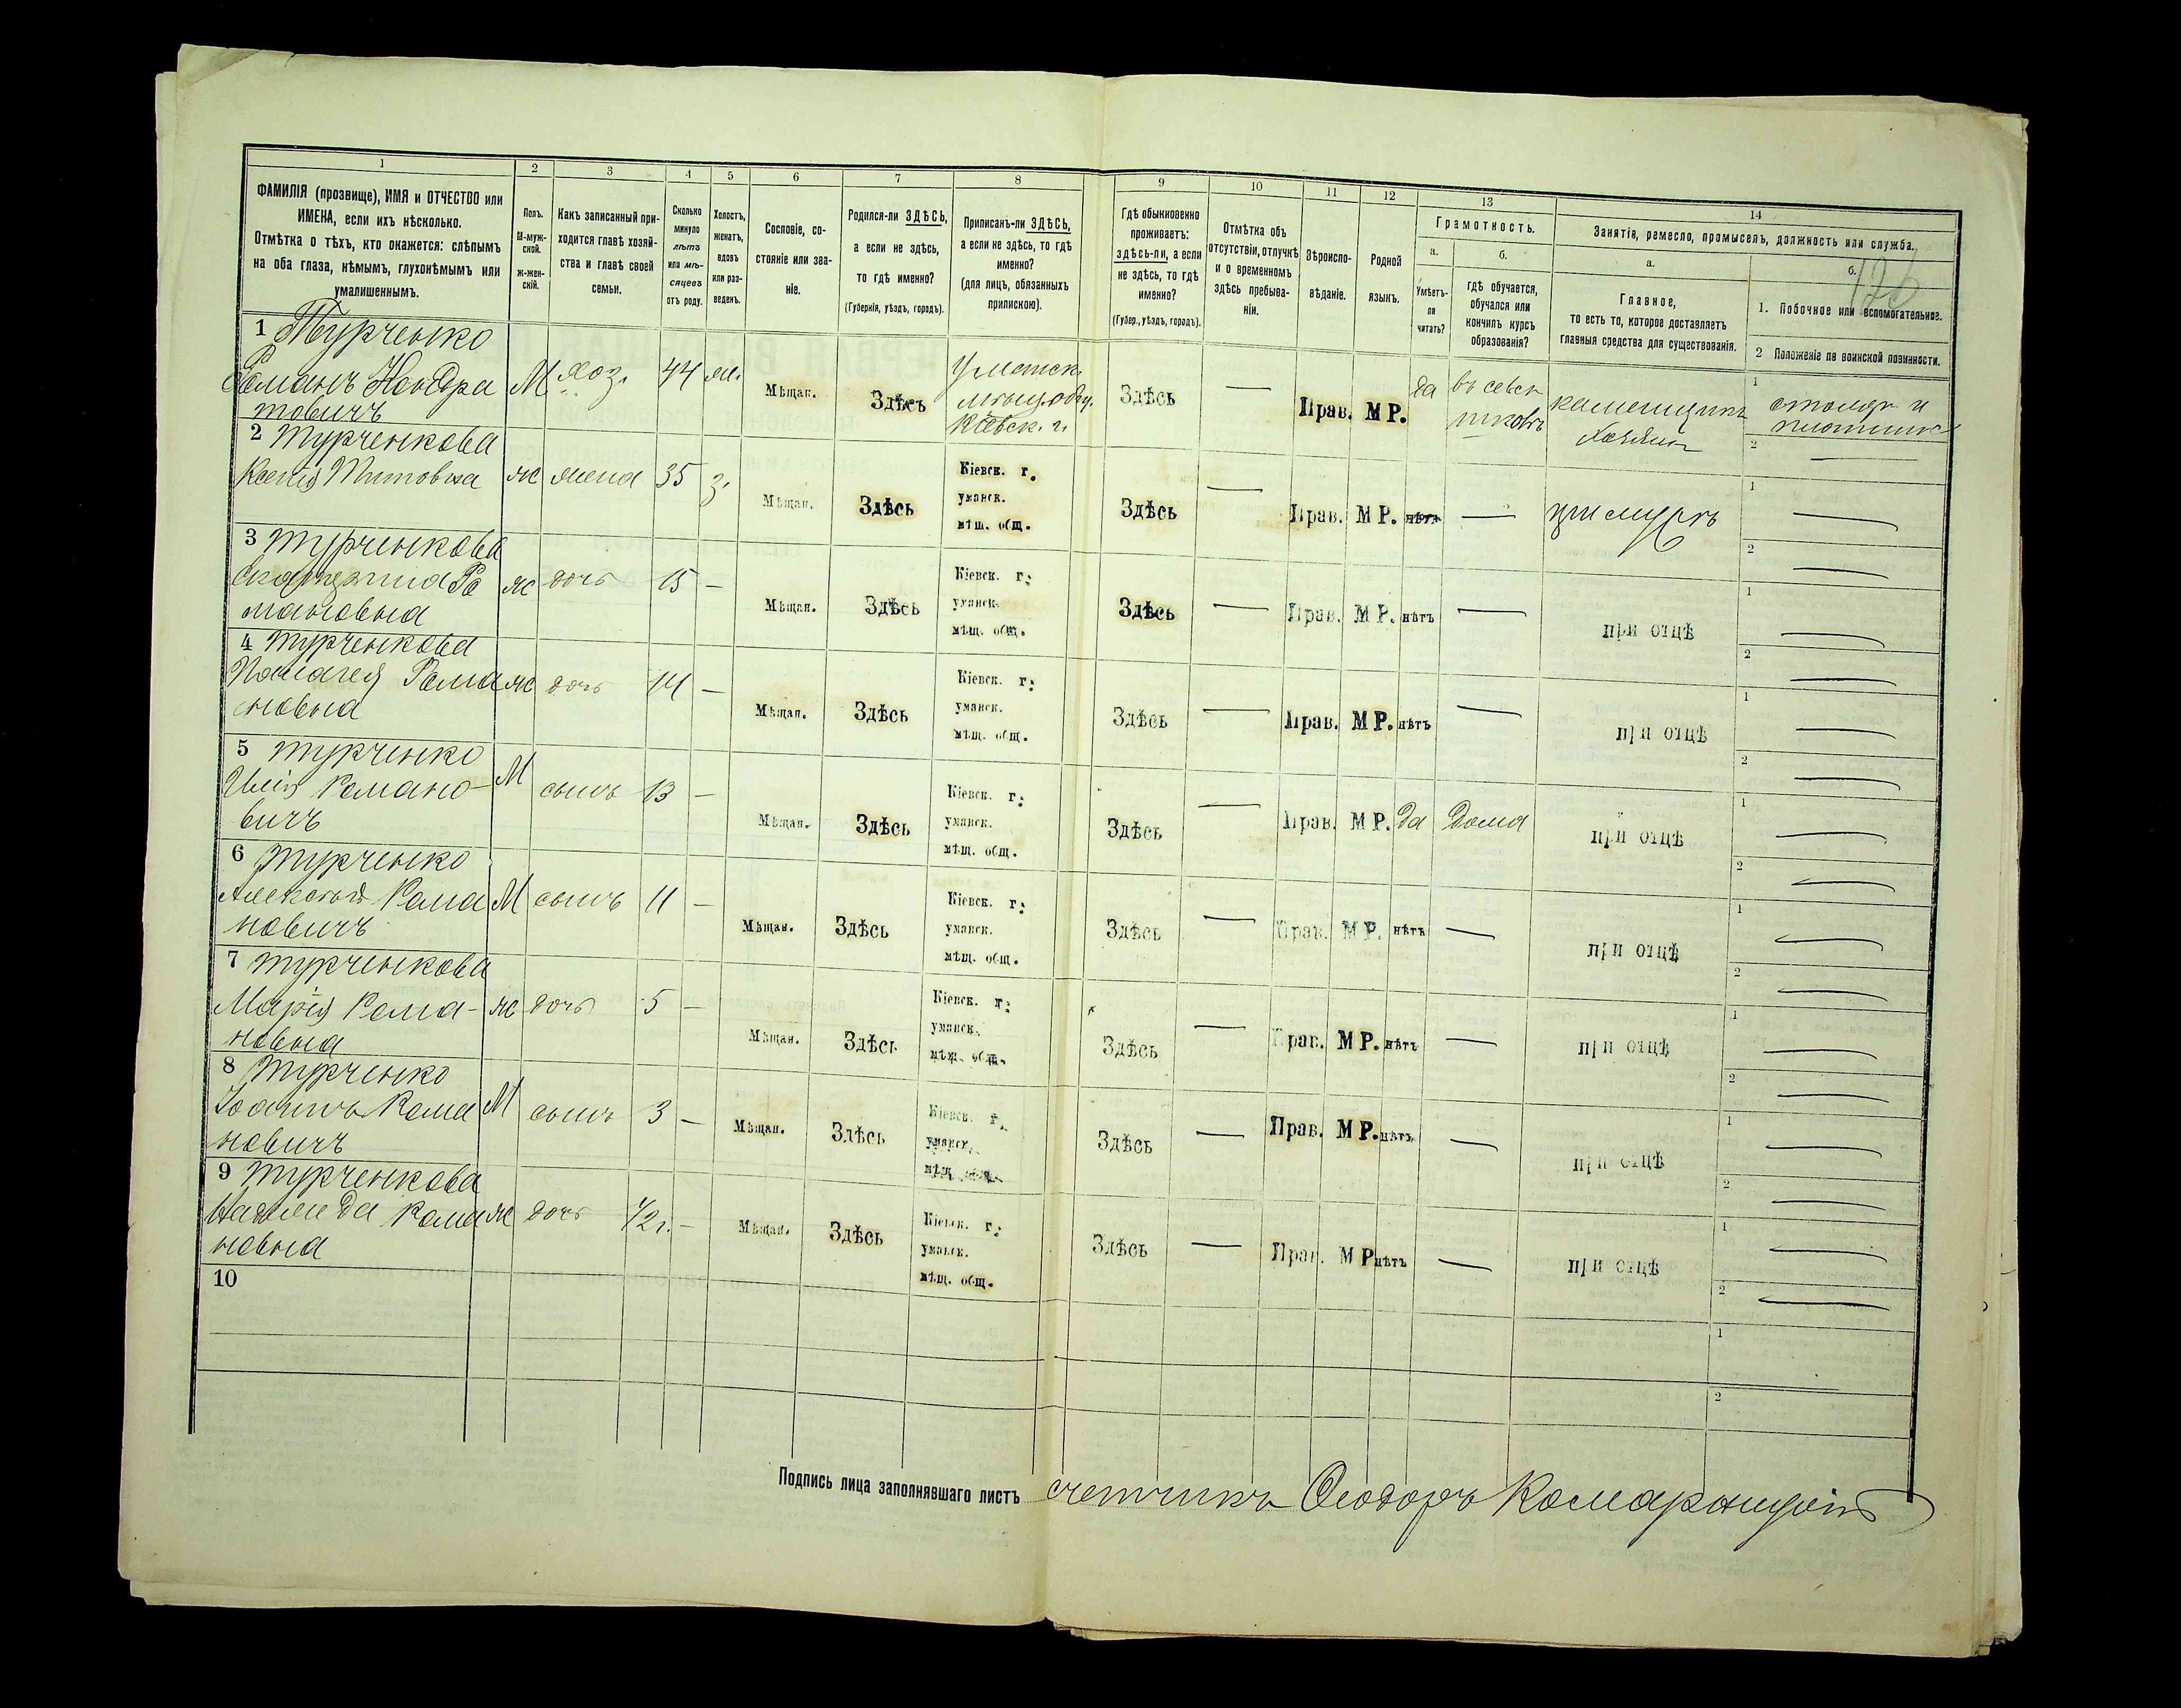 1 2 3 4 5 6 7 8 9 10 11 12 13 14
ФАМИЛІЯ (прозвище), ИМЯ и ОТЧЕСТВО или
ИМЕНА, если ихъ нѣсколько.
Отмѣтка о тѣхъ, кто окажется: слѣпымъ
на оба глаза, нѣмымъ, глухонѣмымъ или
умалишеннымъ.
Полъ.
М-муж-
ской.
ж-жен-
скій.
Какъ записанный при-
ходится главѣ хозяй-
ства и главѣ своей
семьи.
Сколько
минуло
лѣтъ
или мѣ-
сяцевъ
отъ роду.
Холостъ,
женатъ,
вдовъ
или раз-
веденъ.
Сословіе, со-
стояніе или зва-
ніе.
Родился-ли ЗДѢСЬ,
а если не здѣсь,
то гдѣ именно?
(Губернія, уѣздъ, городъ).
Приписанъ-ли ЗДѢСЬ,
а если не здѣсь, то гдѣ
именно?
(для лицъ, обязанныхъ
припискою).
Гдѣ обыкновенно
проживаетъ:
здѣсь-ли, а если
не здѣсь, то гдѣ
именно?
(Губер., уѣздъ, городъ).
Отмѣтка объ
отсутствіи, отлучкѣ
и о временномъ
здѣсь пребыва-
ніи.
Вѣроиспо-
вѣданіе.
Родной
языкъ.
Грамотность.
а.
Умѣетъ-
ли
читать?
б.
гдѣ обучается,
обучался или
кончилъ курсъ
образованія?
Занятія, ремесло, промыселъ, должность или служба.
а.
Главное,
то есть то, которое доставляетъ
главныя средства для существованія.
б.
1. Побочное или вспомогательное.
2 Положеніе по воинской повинности.
126
1 Турченко
Романъ Кондра
товичъ
М хоз. 44 ж. Мѣщан. Здѣсь
Уманск.
мѣщ. общ.
Кіевск. г.
Здѣсь — Прав. М Р. да
въ сельск
школѣ
каменщикъ
хозяин
1 столяр и
плотник
2 —
2 Турченкова
Ксенія Титовна ж жена 35 з. Мѣщан. Здѣсь
Кіевск. г.
уманск.
мѣщ. общ.
Здѣсь — Прав. М Р. нѣтъ — при мужѣ
1 —
2 —
3 Турченкова
Екатерина Ро
мановна
ж дочь 15 — Мѣщан. Здѣсь
Кіевск. г.
уманск.
мѣщ. общ.
Здѣсь — Прав. М Р. нѣтъ — при отцѣ
1 —
2 —
4 Турченкова
Пелагея Рома
новна
ж дочь 14 — Мѣщан. Здѣсь
Кіевск. г.
уманск.
мѣщ. общ.
Здѣсь — Прав. М Р. нѣтъ — при отцѣ
1 —
2 —
5 Турченко
Илія Романо-
вичъ
М сынъ 13 — Мѣщан. Здѣсь
Кіевск. г.
уманск.
мѣщ. общ.
Здѣсь — Прав. М Р. да дома при отцѣ
1 —
2 —
6 Турченко
Алексѣй Рома
новичъ
М сынъ 11 — Мѣщан. Здѣсь
Кіевск. г.
уманск.
мѣщ. общ.
Здѣсь — Прав. М Р. нѣтъ — при отцѣ
1 —
2 —
7 Турченкова
Марія Рома-
новна
ж дочь 5 — Мѣщан. Здѣсь
Кіевск. г.
уманск.
мѣщ. общ.
Здѣсь — Прав. М Р. нѣтъ — при отцѣ
1 —
2 —
8 Турченко
Іоаннъ Рома
новичъ
М сынъ 3 — Мѣщан. Здѣсь
Кіевск. г.
уманск.
мѣщ. общ.
Здѣсь — Прав. М Р. нѣтъ — при отцѣ
1 —
2 —
9 Турченкова
Надежда Рома
новна
ж дочь 1/2 г. — Мѣщан. Здѣсь
Кіевск. г.
уманск.
мѣщ. общ.
Здѣсь — Прав. М Р нѣтъ — при отцѣ
1 —
2 —
10
1
2
Подпись лица заполнявшаго листъ счетчикъ Ѳеодоръ Комарницкій